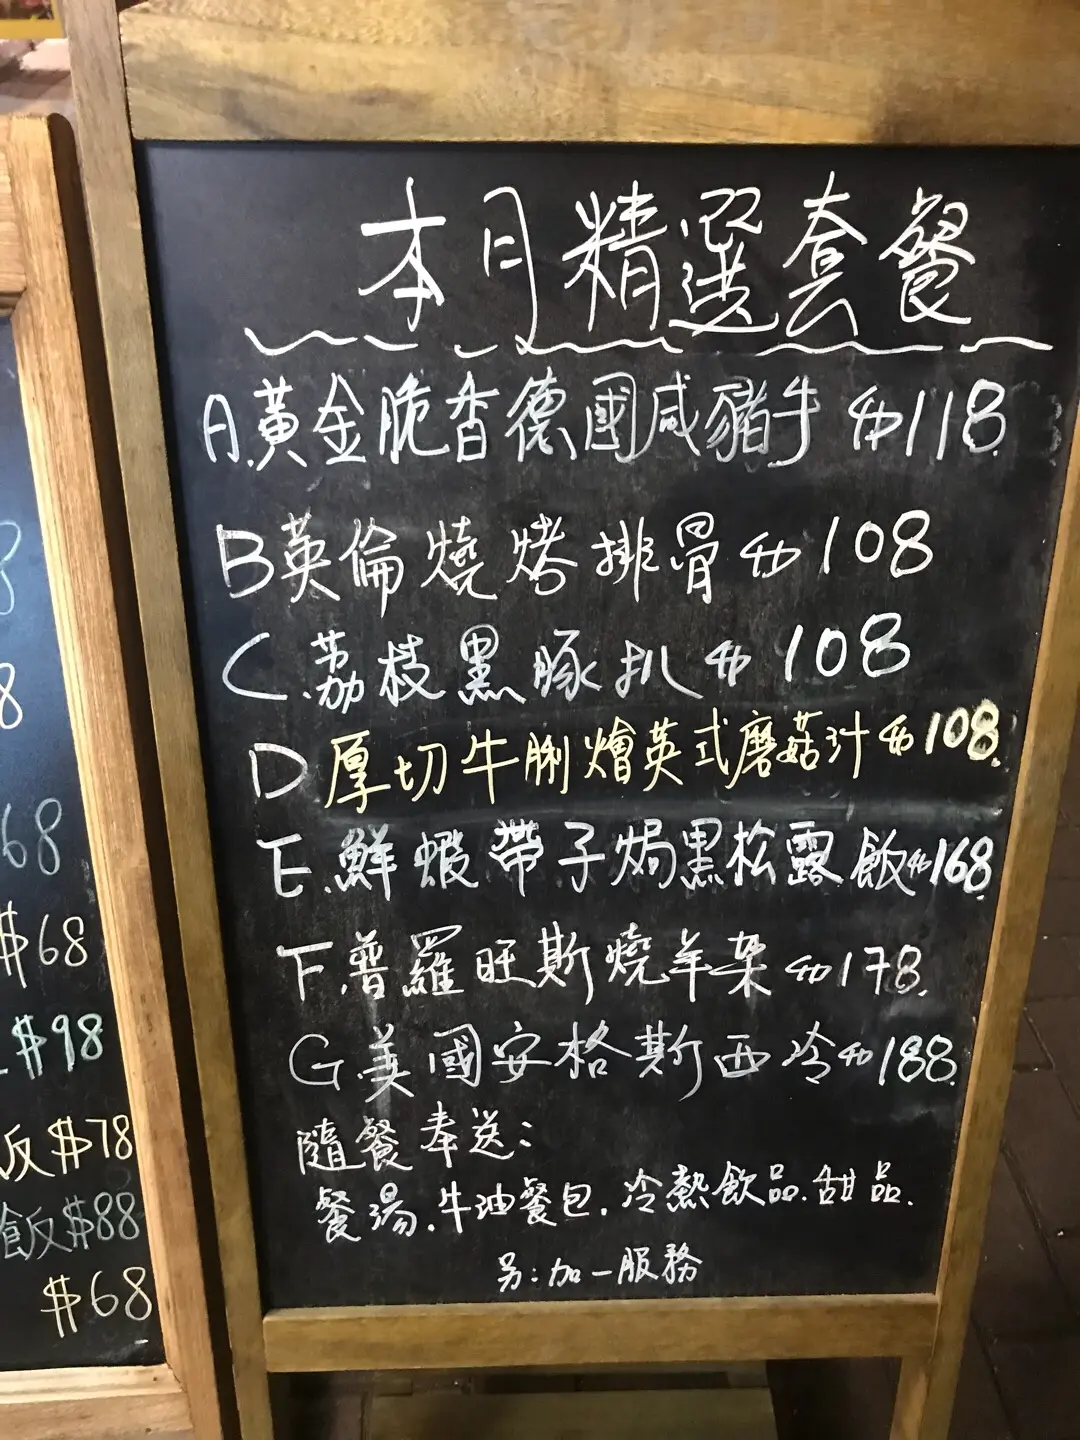 本月精選套餐
A.黃金脆香德國咸豬手 $118.
B英倫燒烤排骨 $108
C.荔枝黑豚扒 $108
D厚切牛脷燴英式磨菇汁 $108.
E.鮮蝦帶子焗黑松露飯 $168
F.普羅旺斯燒羊架 $178.
G美國安格斯西冷 $188.
隨餐奉送:
餐湯.牛油餐包.冷熱飲品.甜品.
另:加一服務
8
8
68
$68
$98
飯 $78
飯 $88
$68